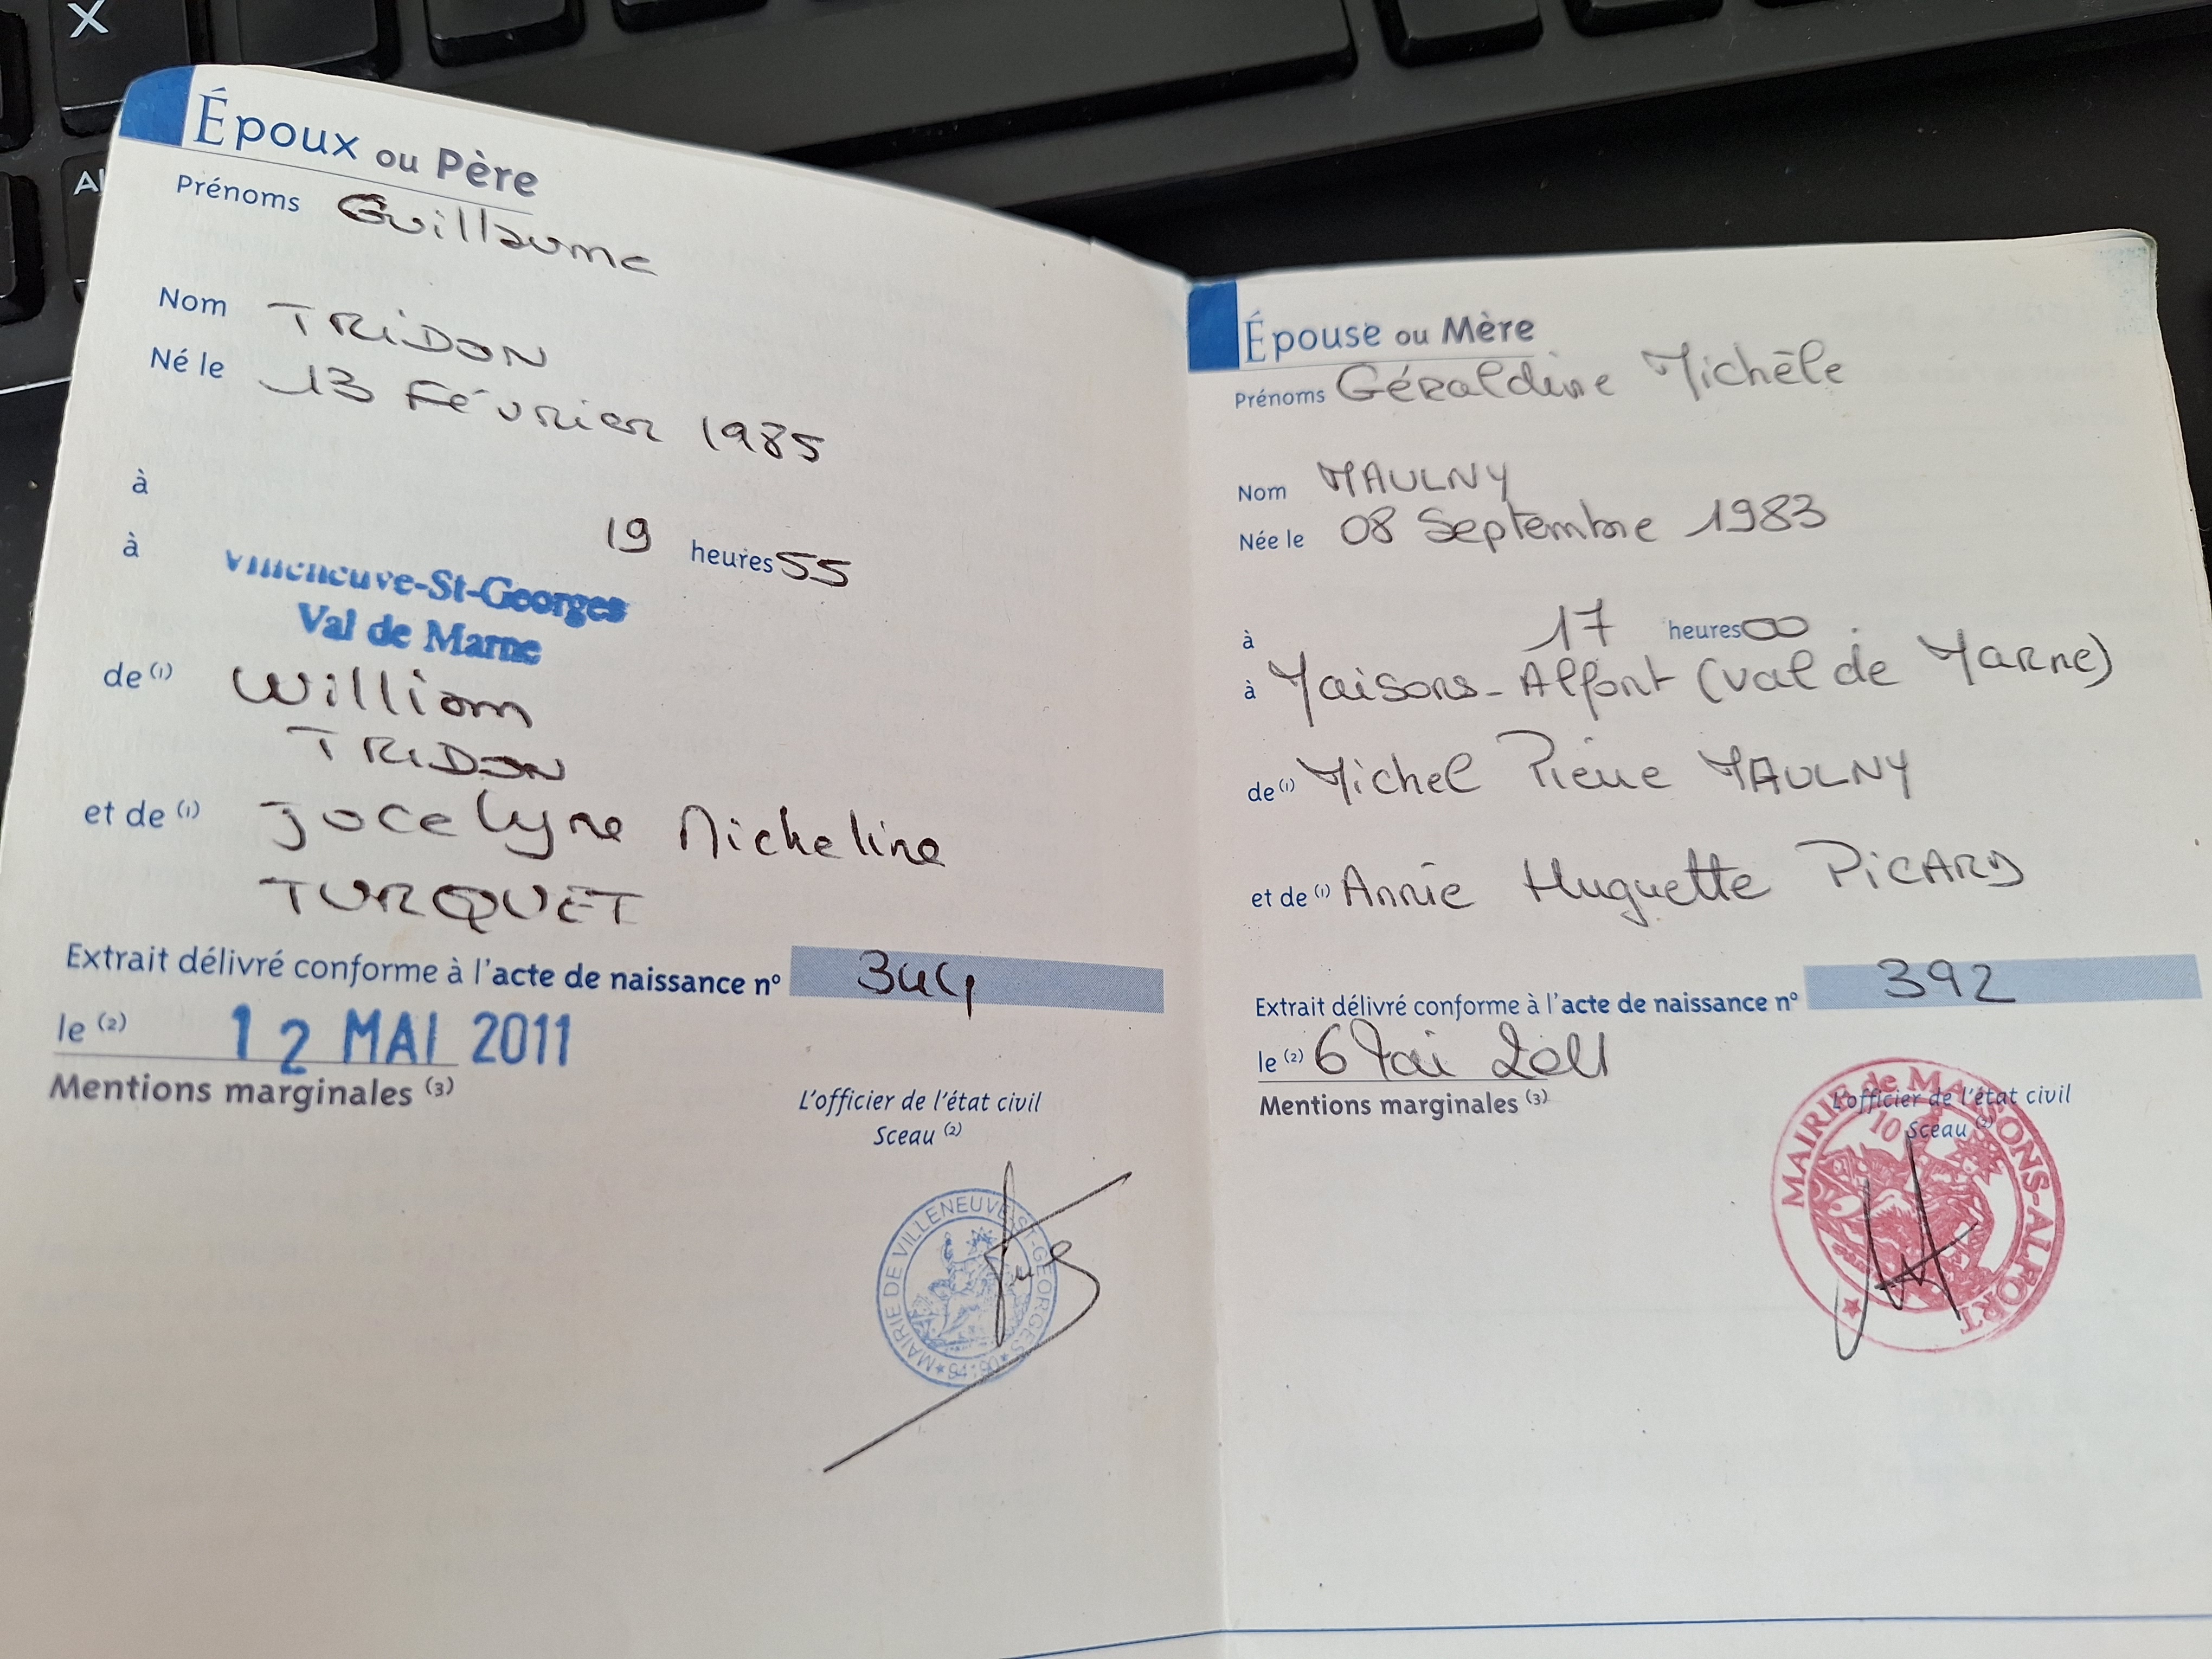 X
Époux ou Père
Prénoms Guillaume
Nom TRIDON
Né le 13 Février 1985
à
19 heures 55
à Villeneuve-St-Georges
Val de Marne
de (1) William
TRIDON
et de (1) Jocelyne Micheline
TURQUET
Extrait délivré conforme à l'acte de naissance n° 344
le (2) 12 MAI 2011
Mentions marginales (3)
L'officier de l'état civil
Sceau (2)
MAIRIE DE VILLENEUVE-ST-GEORGES
Épouse ou Mère
Prénoms Géraldine Michèle
Nom MAULNY
Née le 08 Septembre 1983
à 17 heures 00
à Maisons-Alfort (Val de Marne)
de (1) Michel Pierre MAULNY
et de (1) Annie Huguette PICARD
Extrait délivré conforme à l'acte de naissance n° 392
le (2) 6 Mai 2011
Mentions marginales (3)
L'officier de l'état civil
Sceau (2)
MAIRIE de MAISONS-ALFORT
10